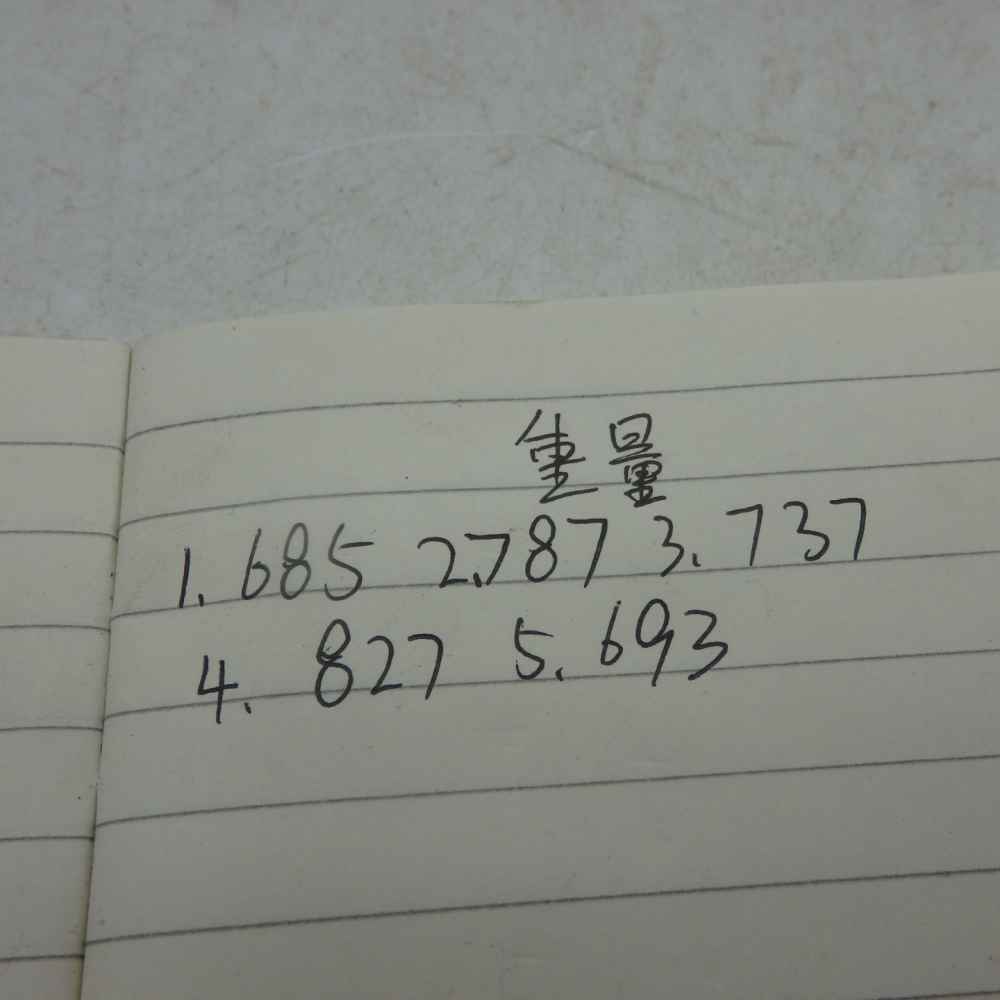 重量
1. 685 2.787 3. 737
4. 827 5. 693